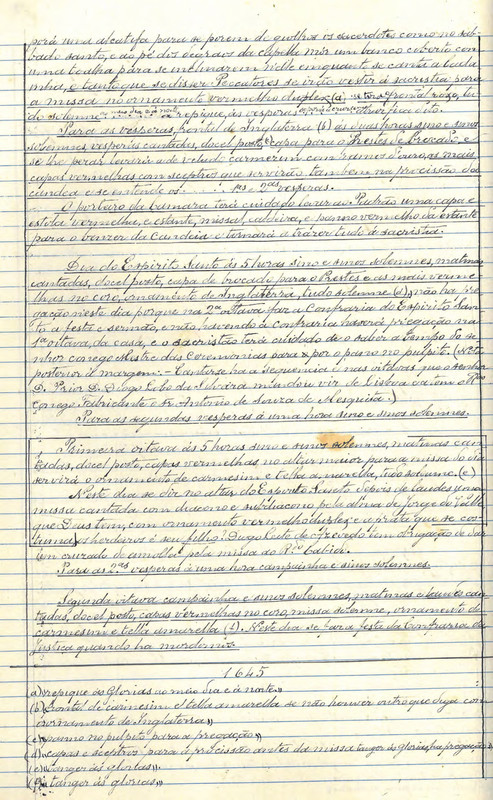 porá uma alcatifa para se porem de giolhos os sacerdotes como no sab-
bado santo, e ao pé dos degraos da capella mór um banco coberto com
uma toalha para se inclinarem nelle emquanto se canta a ladai
nha, e tanto que se disser Peccatores se irão vestir á sacristia para
a missa no ornamento vermelho duplex (a) frontal rôxo, tu
do solemne repique, ás vesperas
Para as vesperas frontal de Inglaterra (b) ás duas horas sino e sinos
solemnes vesperas cantadas, docel posto, capa para o Prestes de brocado, e
se lhe porá de veludo carmezim com ramos d'ouro, as mais
capas vermelhas com sceptros que servirão tambem na procissão da
candea e se entende os 1as e 2as vesperas.
O porteiro da camara terá cuidado levar ao Padrão uma capa e
estola vermelha, e estante, missal, caldeira, e panno vermelho da estante
para o benzer da candeia e tornará a trazer tudo á sacristia.
Dia do Espirito Santo ás 5 horas sino e sinos solemnes, matinas
cantadas, docel posto, capa de brocado para o Prestes e as mais verme
lhas no coro, ornamento de Inglaterra, tudo solemne (c), não ha pré-
gação neste dia porque na 2a oitava faz a Confraria do Espirito San-
to a festa e sermão, e não havendo a confraria haverá prégação na
1a oitava, da casa, e o sacristão terá cuidado de o saber a tempo do se-
nhor conego Mestre das Ceremonias para pôr o pano no pulpito. (Nota
posterior á margem: - Cantar-se ha a sequencia e nas oitavas que o senhor
D. Prior D. Diogo Lobo da Silveira mandou vir de Lisboa
Conego Fabricante o Sr. Antonio de Souza de Mesquita.)
Para as segundas vesperas á uma hora sino e sinos solemnes.
Primeira oitava ás 5 horas sino e sinos solemnes, matinas can-
tadas, docel posto, capas vermelhas no altar maior para a missa do dia
servirá o ornamento de carmesim e tella amarella, tudo solemne. (e)
Neste dia se diz no altar do Espirito Santo depois de laudes uma
missa cantada com diacono e subdiacono pela alma de Jorge do Valle
que Deus tem, com ornamento vermelho duplex e a errata que se cos-
tuma, os herdeiros e seu filho Diogo Leite de Azevedo tem obrigação de dar
um cruzado de esmolla pela missa ao Rmo Cabido.
Para as 2as vesperas á uma hora campainha e sinos solemnes.
Segunda oitava campainha e sinos solemnes, matinas e laudes can-
tadas, docel posto, capas vermelhas no coro, missa solemne, ornamento de
carmesim e tella amarella (f). Neste dia se faz a festa da Confraria da
Justica quando ha mordomos.
1645
(a) repique ás Glorias ao meio dia e á noite»
(b) frontal de carmesim e tella amarella se não houver outro que diga com
o ornamento de Inglaterra»
(c) panno no pulpito para a pregação»
(d) capas e sceptros para a procissão antes da missa tanger ás glorias, ha pregação»
(e) tanger ás glorias».
(f) tanger ás glorias»